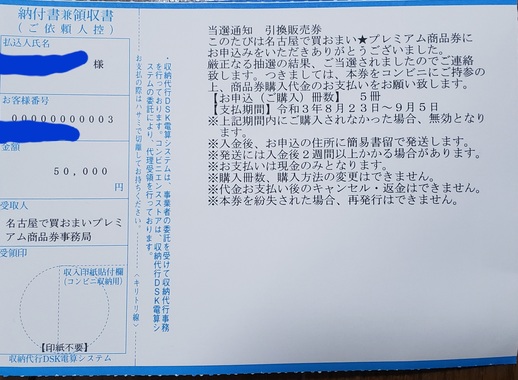 納付書兼領収書
(ご依頼人控)
払込人氏名
様
お客様番号
00000000003
金額
50,000
円
受取人
名古屋で買おまいプレミ
アム商品券事務局
受領印
収入印紙貼付欄
(コンビニ収納用)
【印紙不要】
収納代行DSK電算システム
収納代行DSK電算システムは、事業者の委託を受けて収納代行事務
を行っております。コンビニエンスストアは、収納代行DSK電算シ
ステムの委託により、代理受領を行っております。
お支払の際は、ハサミで切離してお持ちください。
(キリトリ線)
当選通知 引換販売券
このたびは名古屋で買おまい★プレミアム商品券に
お申込みをいただきありがとうございました。
厳正なる抽選の結果、ご当選されましたのでご連絡
致します。つきましては、本券をコンビニにご持参の
上、商品券購入代金のお支払いをお願い致します。
【お申込(ご購入)冊数】 5冊
【支払期間】令和3年8月23日~9月5日
※上記期間内にご購入されなかった場合、無効となり
ます。
※入金後、お申込の住所に簡易書留で発送します。
※発送には入金後2週間以上かかる場合があります。
※お支払いは現金のみとなります。
※購入冊数、購入方法の変更はできません。
※代金お支払い後のキャンセル・返金はできません。
※本券を紛失された場合、再発行はできません。